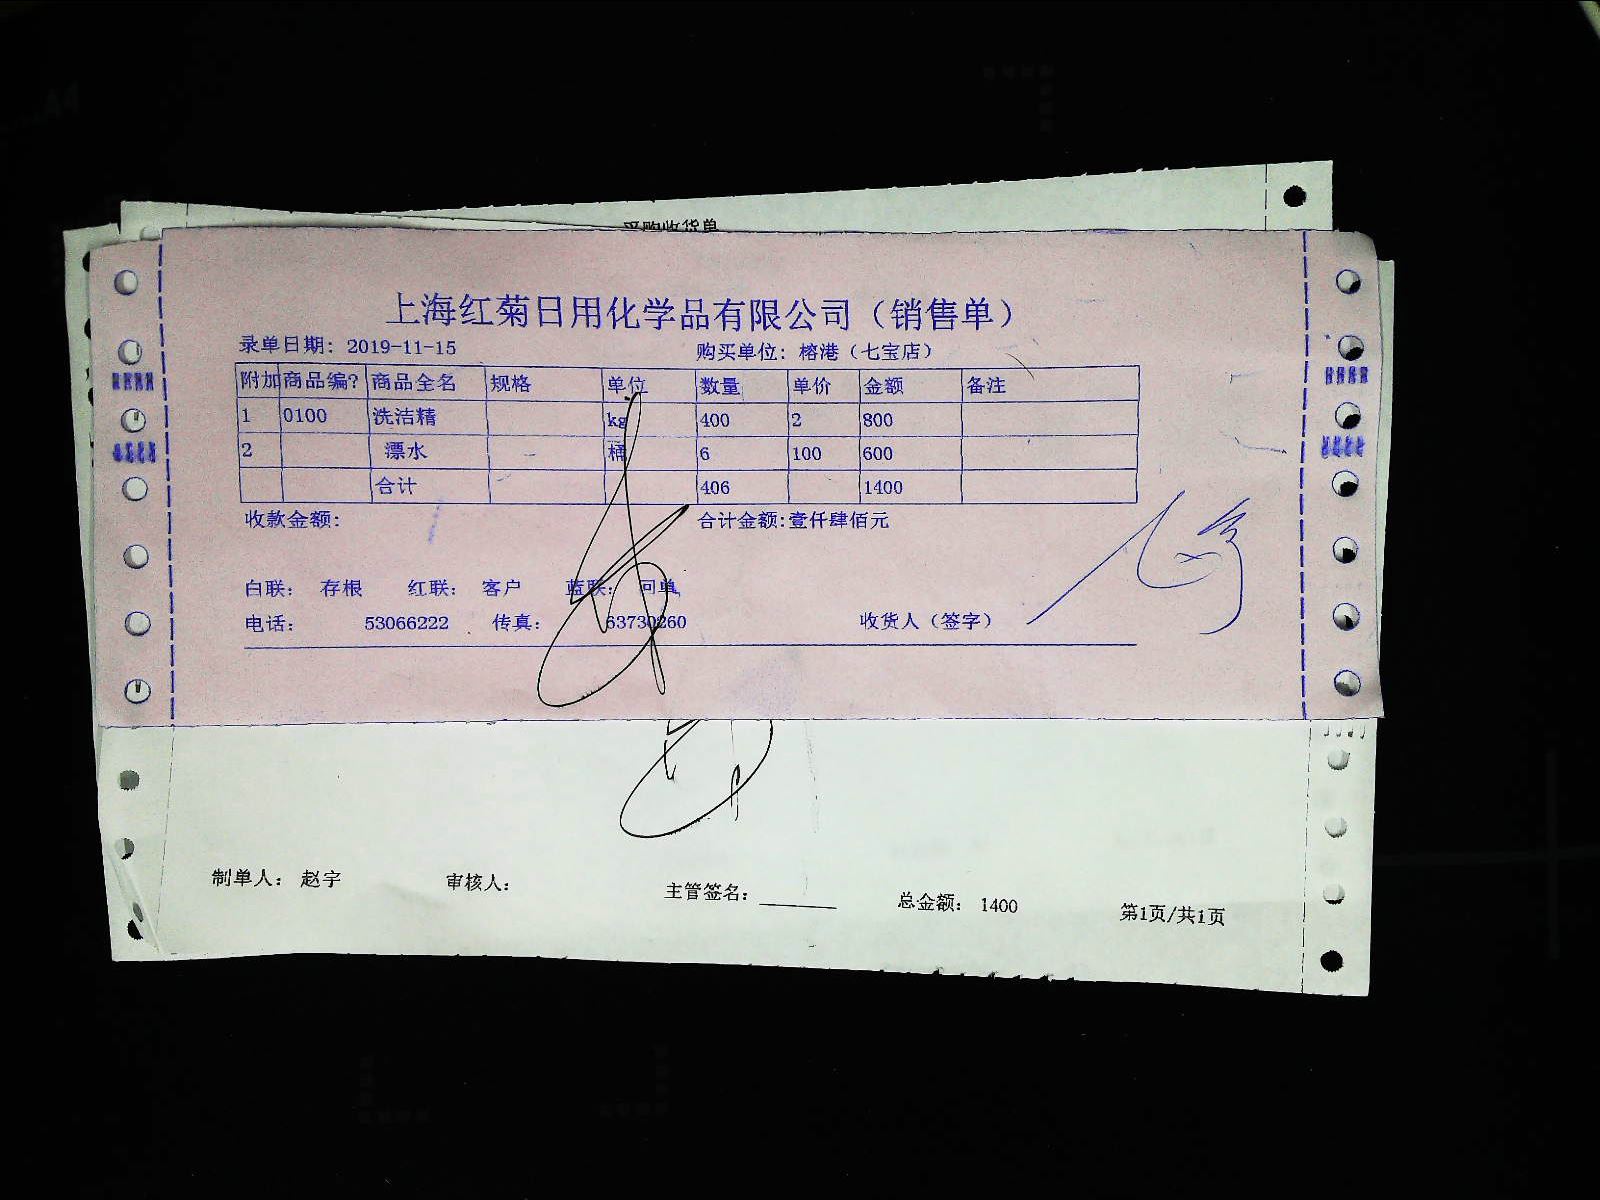 采购收货单
上海红菊日用化学品有限公司（销售单）
录单日期: 2019-11-15 购买单位: 榕港（七宝店）
附加 商品编? 商品全名 规格 单位 数量 单价 金额 备注
1 0100 洗洁精 kg 400 2 800
2 漂水 桶 6 100 600
合计 406 1400
收款金额: 合计金额:壹仟肆佰元
白联: 存根 红联: 客户 蓝联: 回单
电话: 53066222 传真: 63730260 收货人（签字）
制单人: 赵宇 审核人: 主管签名: 总金额: 1400 第1页/共1页